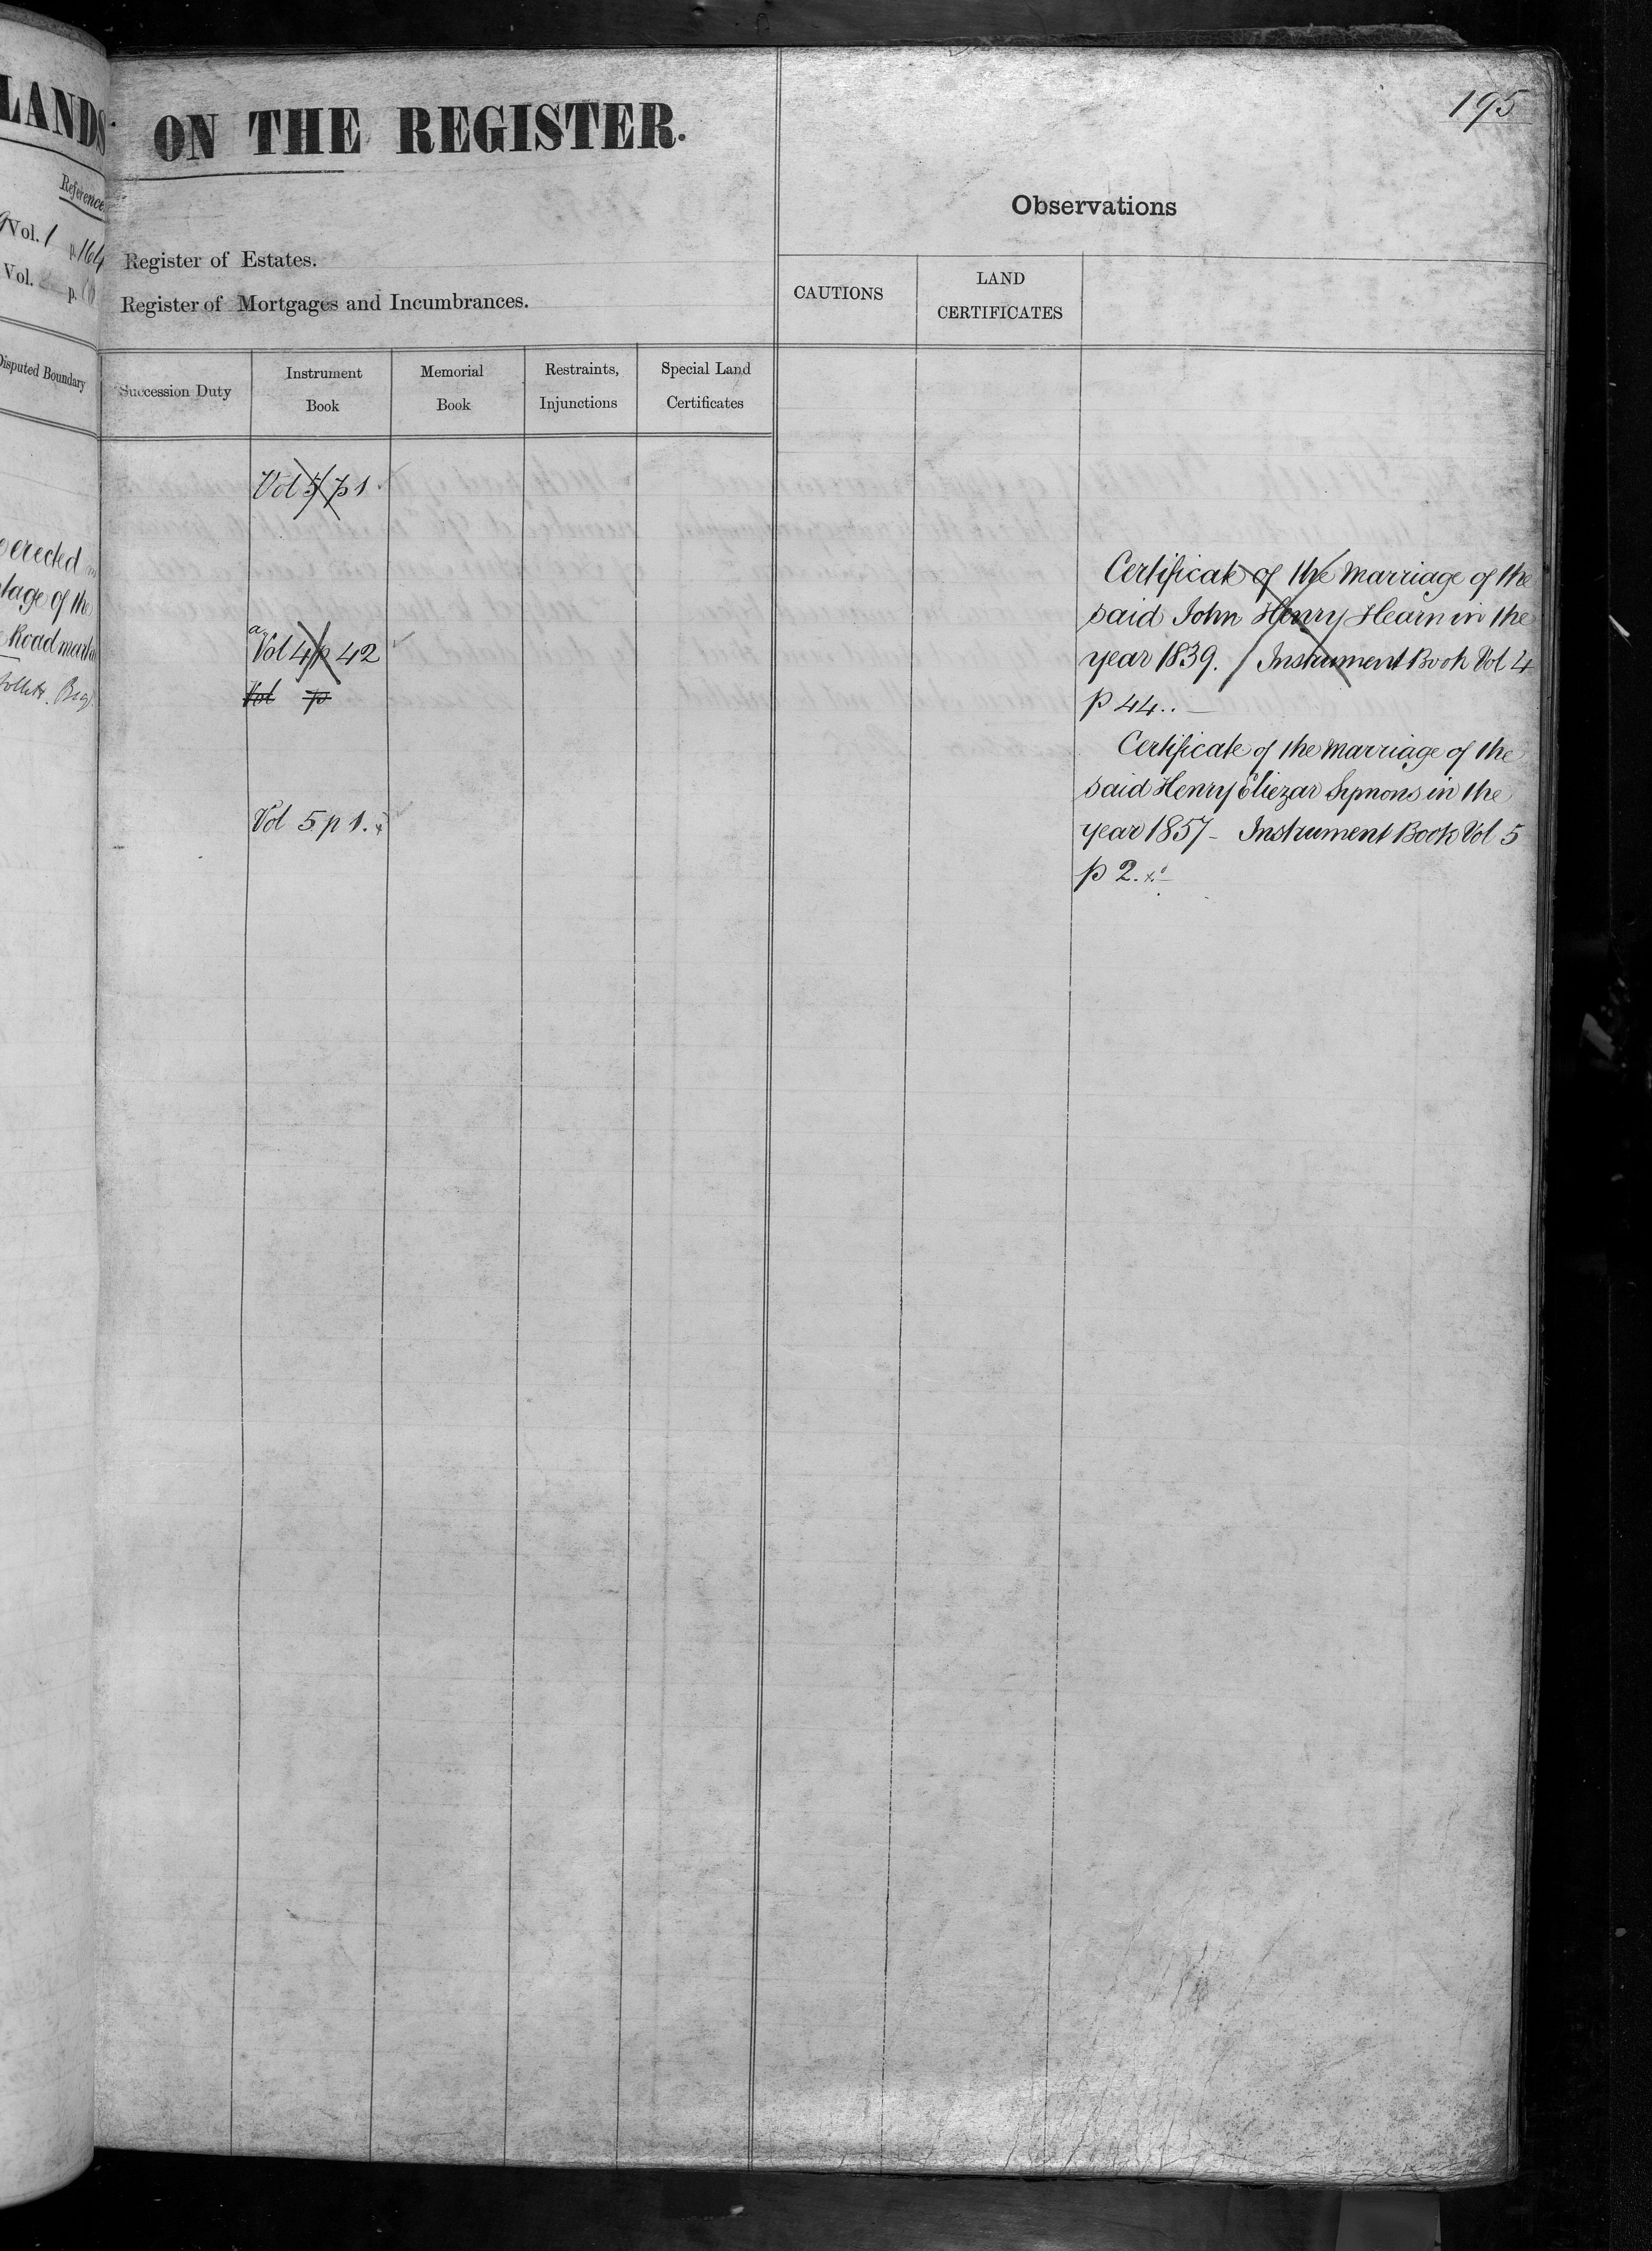 LANDS
Reference
Vol. 1 p. 164
Vol. p.
Disputed Boundary
erected
tage of the
Road
195
ON THE REGISTER.
Register of Estates.
Register of Mortgages and Incumbrances.
Observations
CAUTIONS
LAND
CERTIFICATES
Succession Duty
Instrument
Book
Memorial
Book
Restraints,
Injunctions
Special Land
Certificates
Vol 5 p 1.
a
Vol 4 p 42
Vol p
Vol 5 p 1.
Certificate of the Marriage of the
said John Henry Hearn in the
year 1839. / Instrument Book Vol 4
p 44..
Certificate of the Marriage of the
said Henry Eliezar Symons in the
year 1857 - Instrument Book Vol 5
p 2.